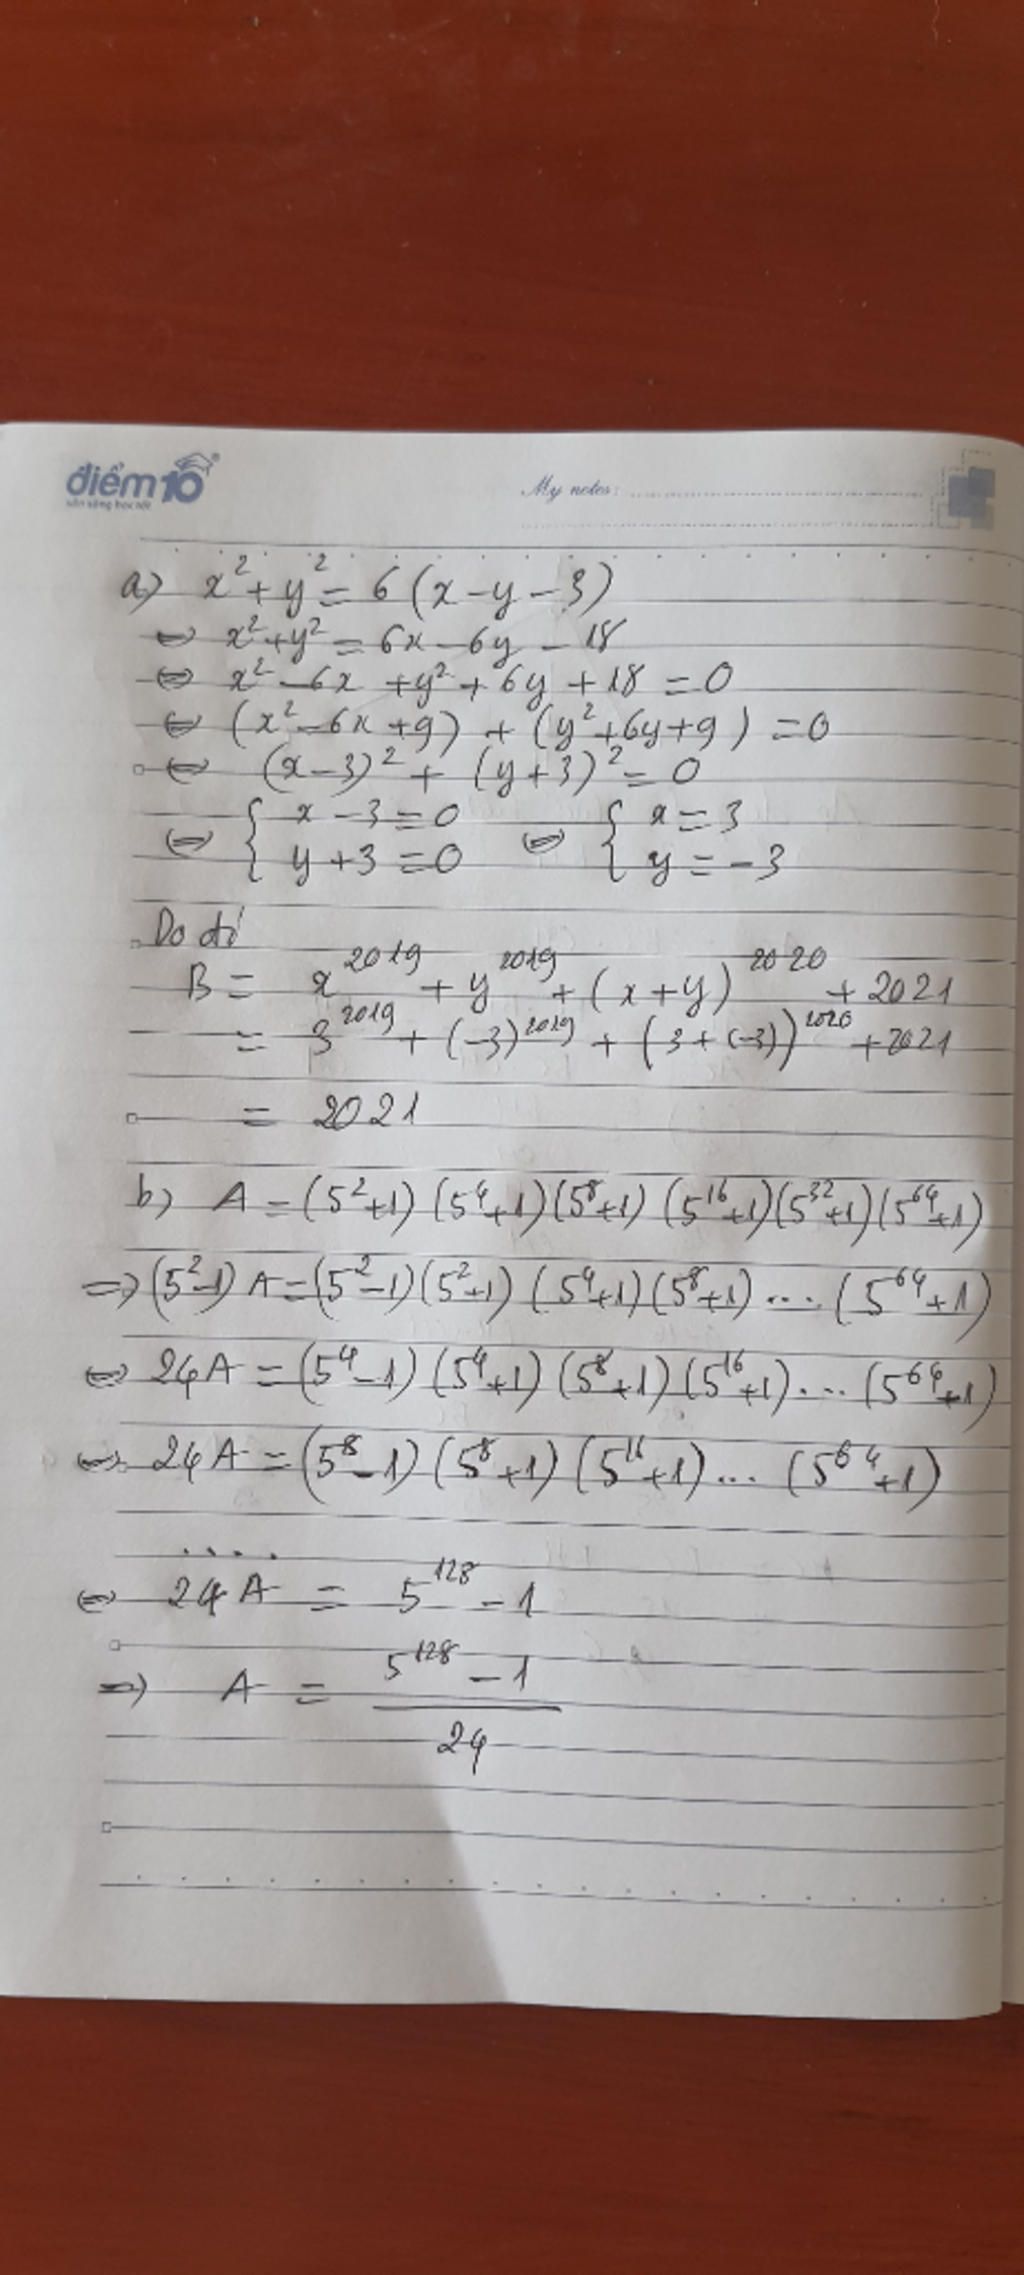 điểm10
sẵn sàng học tốt
My notes:
a) x² + y² = 6 (x - y - 3)
⇔ x² + y² = 6x - 6y - 18
⇔ x² - 6x + y² + 6y + 18 = 0
⇔ (x² - 6x + 9) + (y² + 6y + 9) = 0
⇔ (x - 3)² + (y + 3)² = 0
⇔ { x - 3 = 0 ⇔ { x = 3
{ y + 3 = 0 { y = -3
Do đó
B = x²⁰¹⁹ + y²⁰¹⁹ + (x + y)²⁰²⁰ + 2021
= 3²⁰¹⁹ + (-3)²⁰¹⁹ + (3 + (-3))²⁰²⁰ + 2021
= 2021
b) A = (5² + 1) (5⁴ + 1) (5⁸ + 1) (5¹⁶ + 1) (5³² + 1) (5⁶⁴ + 1)
=> (5² - 1) A = (5² - 1) (5² + 1) (5⁴ + 1) (5⁸ + 1) .... (5⁶⁴ + 1)
⇔ 24A = (5⁴ - 1) (5⁴ + 1) (5⁸ + 1) (5¹⁶ + 1) ... (5⁶⁴ + 1)
⇔ 24A = (5⁸ - 1) (5⁸ + 1) (5¹⁶ + 1) ... (5⁶⁴ + 1)
....
⇔ 24A = 5¹²⁸ - 1
=> A = 5¹²⁸ - 1
24